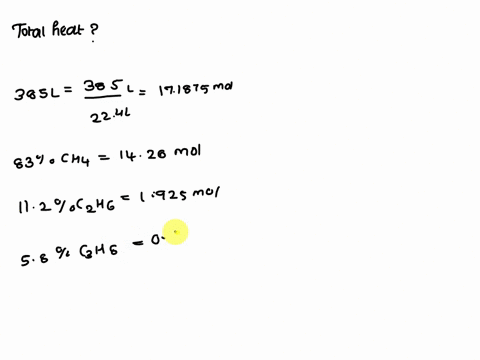 Total heat?
385L = 385 L = 17.1875 mol
22.4L
83% CH4 = 14.28 mol
11.2% C2H6 = 1.925 mol
5.8% C3H8 = 0.